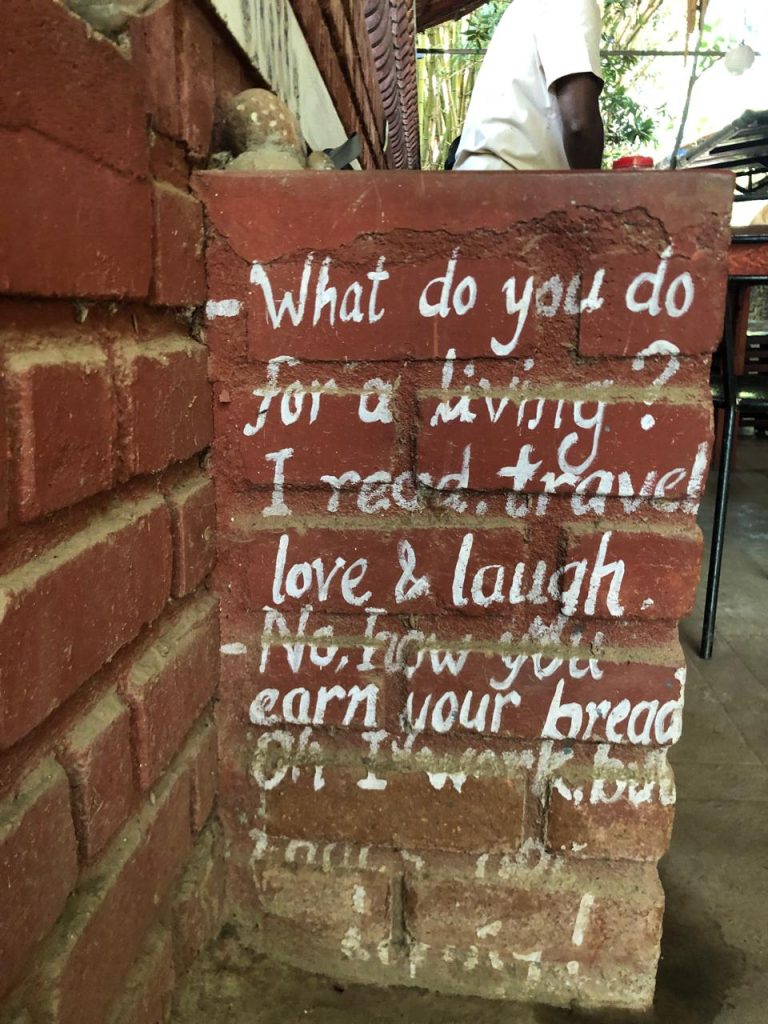 - What do you do
for a living?
I read, travel
love & laugh.
- No, how you
earn your bread
Oh I work, but
!